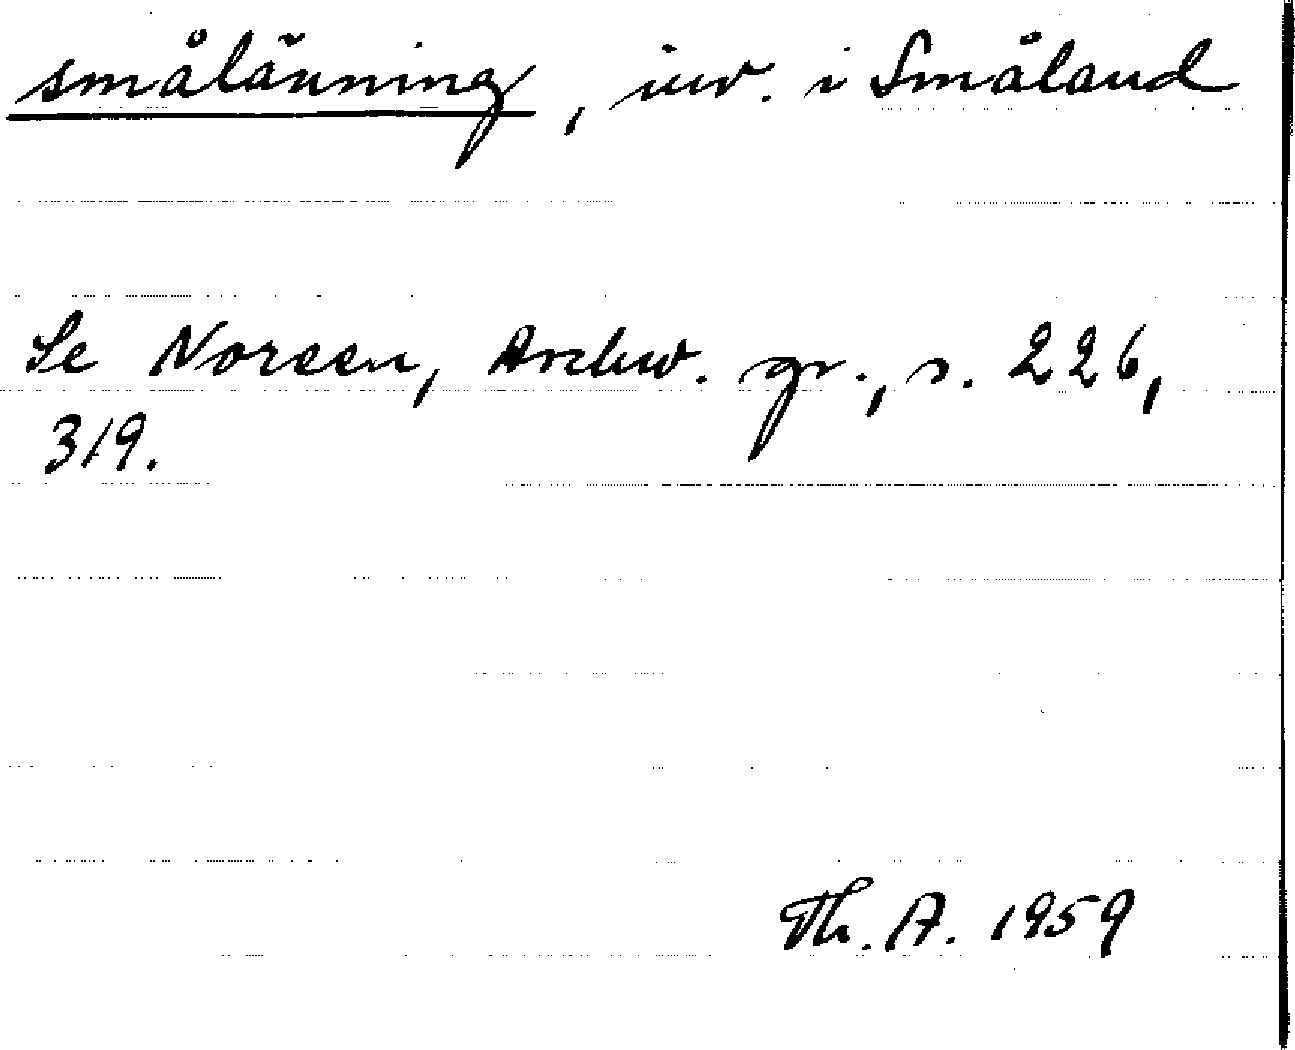 smålänning, inv. i Småland
Se Noreen, Ärtmv. gr., s. 226,
319.
Th. A. 1959